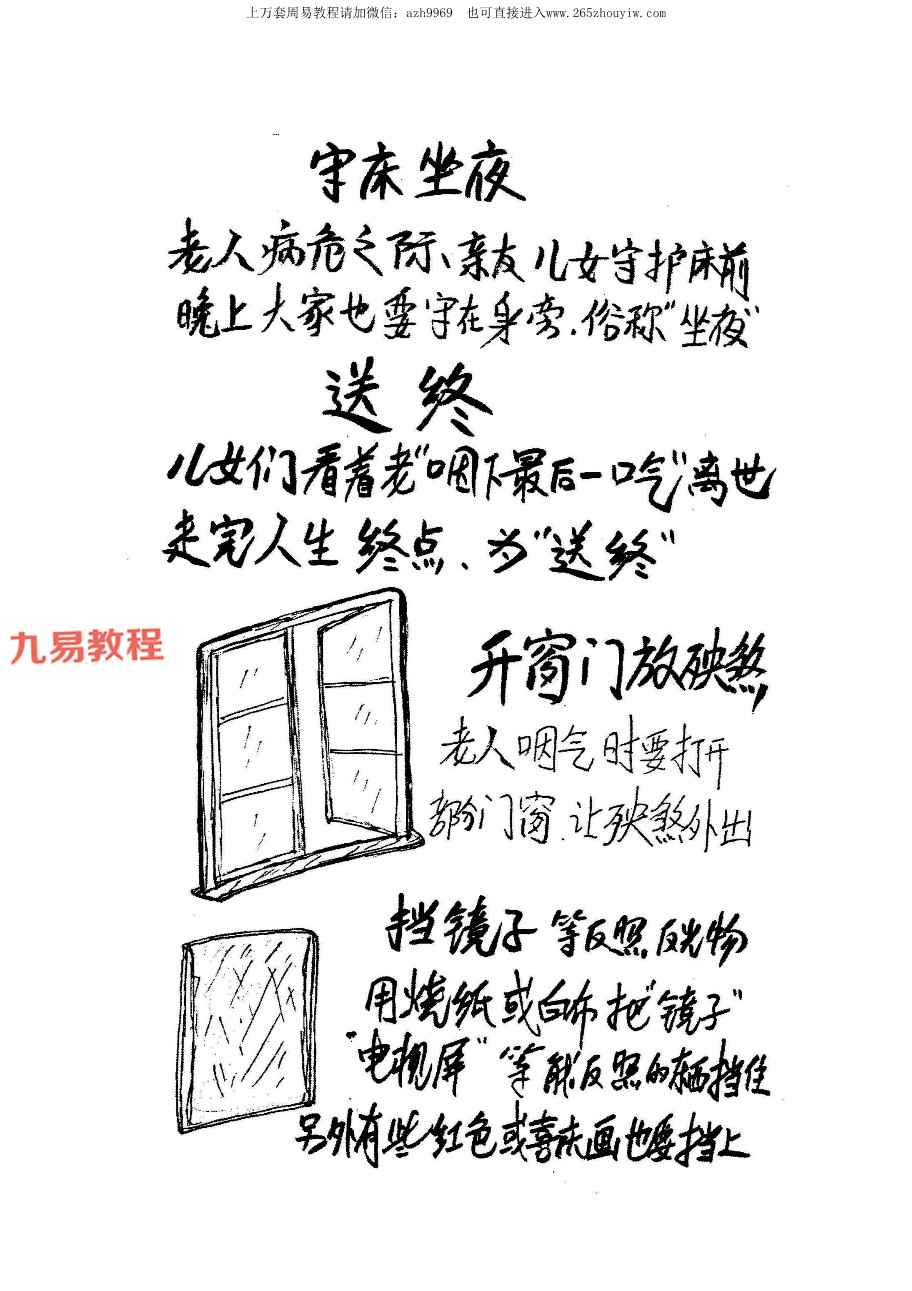 上万套周易教程请加微信：azh9969 也可直接进入www.265zhouyiw.com
守床坐夜
老人病危之际、亲友儿女守护床前
晚上大家也要守在身旁.俗称"坐夜"
送终
儿女们看着老"咽下最后一口气"离世
走完人生终点、为"送终"
九易教程
开窗门放殃煞,
老人咽气时要打开
部分门窗.让殃煞外出
挡镜子等反照反光物
用烧纸或白布把"镜子"
"电视屏"等能反照的东西挡住
另外有些红色或喜庆画也要挡上